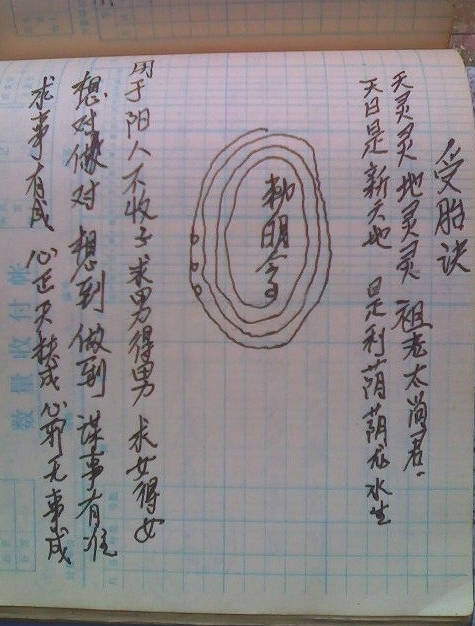 受胎诀
天灵灵地灵灵 祖老太尚君
天日是新天地 日是利荫荫龙水生
勅明令
用于阳人不收子求男得男 求女得女
想对做对 想到做到 谋事有准
求事有成 心正灵越成 心邪无事成
数量收付帐